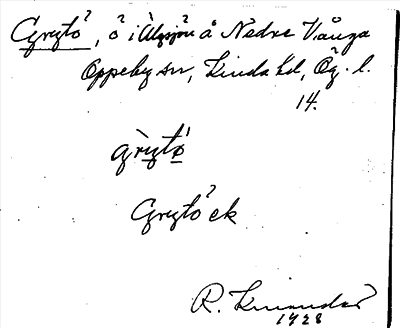 Grytö, ö i Älgsjön å Nedre Vånga
Oppeby sn, Kinda hd, Ög. l.
14.
grytö
Grytö ek
R.
1928